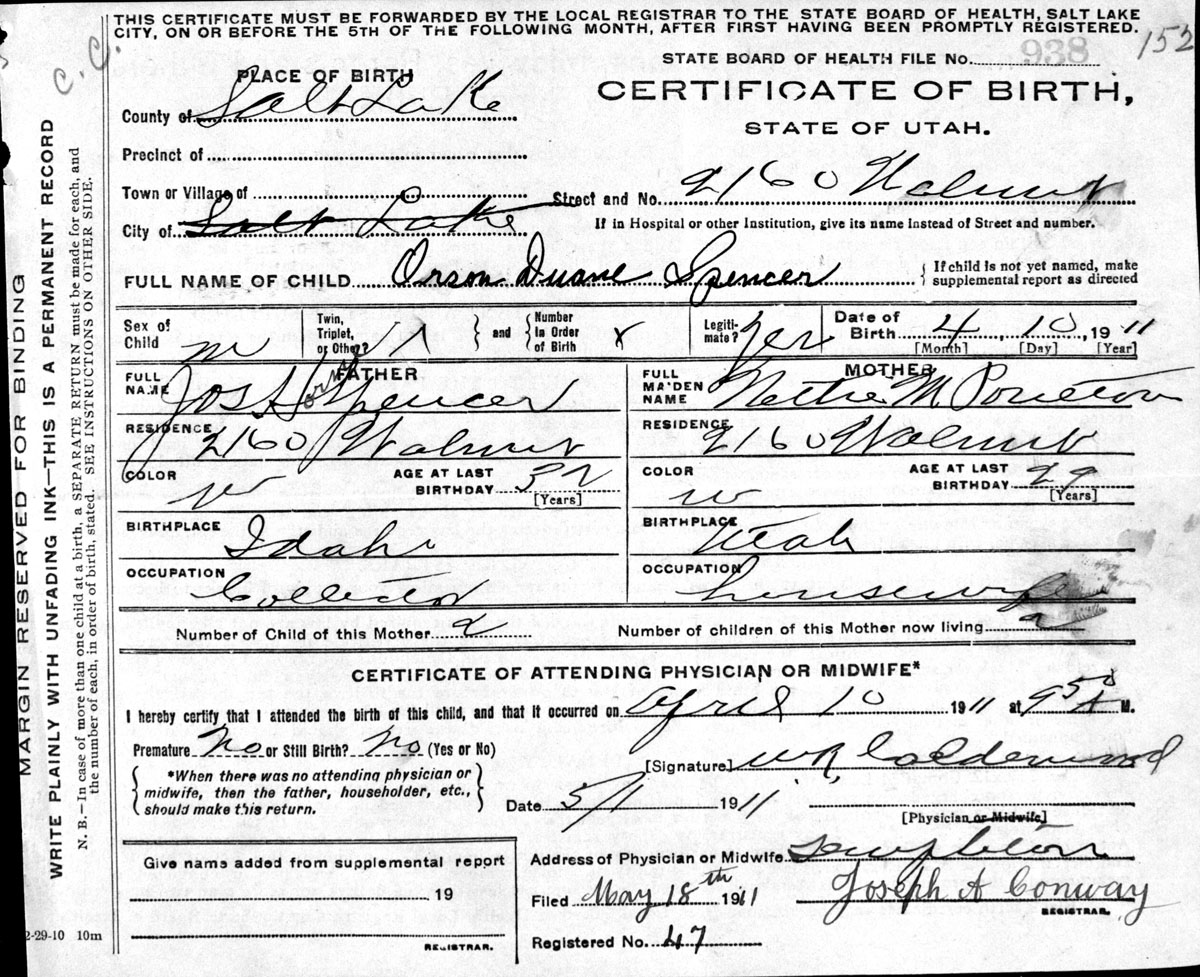 THIS CERTIFICATE MUST BE FORWARDED BY THE LOCAL REGISTRAR TO THE STATE BOARD OF HEALTH, SALT LAKE
CITY, ON OR BEFORE THE 5TH OF THE FOLLOWING MONTH, AFTER FIRST HAVING BEEN PROMPTLY REGISTERED.
152
C. C.
STATE BOARD OF HEALTH FILE No. 938
PLACE OF BIRTH
CERTIFICATE OF BIRTH,
STATE OF UTAH.
County of Salt Lake
Precinct of
Town or Village of
Street and No. 2160 Walnut
City of Salt Lake
If in Hospital or other Institution, give its name instead of Street and number.
FULL NAME OF CHILD Orson Duane Spencer {If child is not yet named, make
supplemental report as directed
Sex of Child m Twin, Triplet, or Other? 1 } and { Number in Order of Birth x Legitimate? yes Date of Birth 4, 10, 1911
[Month] [Day] [Year]
FATHER
FULL NAME Jos Spencer
RESIDENCE 2160 Walnut
COLOR w AGE AT LAST BIRTHDAY 32
[Years]
BIRTHPLACE Idaho
OCCUPATION Collector
MOTHER
FULL MAIDEN NAME Nettie M
RESIDENCE 2160 Walnut
COLOR w AGE AT LAST BIRTHDAY 29
[Years]
BIRTHPLACE Utah
OCCUPATION housewife
Number of Child of this Mother 2 Number of children of this Mother now living 2
CERTIFICATE OF ATTENDING PHYSICIAN OR MIDWIFE*
I hereby certify that I attended the birth of this child, and that it occurred on April 10 1911 at 9 50 A M.
Premature No or Still Birth? No (Yes or No)
{*When there was no attending physician or
midwife, then the father, householder, etc.,
should make this return.}
[Signature] W R Calderwood
Date 5/1 1911
[Physician or Midwife]
Give name added from supplemental report
19
REGISTRAR.
2-29-10 10m
Address of Physician or Midwife Templeton
Filed May 18th 1911 Joseph A Conway
REGISTRAR.
Registered No. 47
MARGIN RESERVED FOR BINDING
WRITE PLAINLY WITH UNFADING INK—THIS IS A PERMANENT RECORD
N. B.—In case of more than one child at a birth, a SEPARATE RETURN must be made for each, and
the number of each, in order of birth, stated. SEE INSTRUCTIONS ON OTHER SIDE.